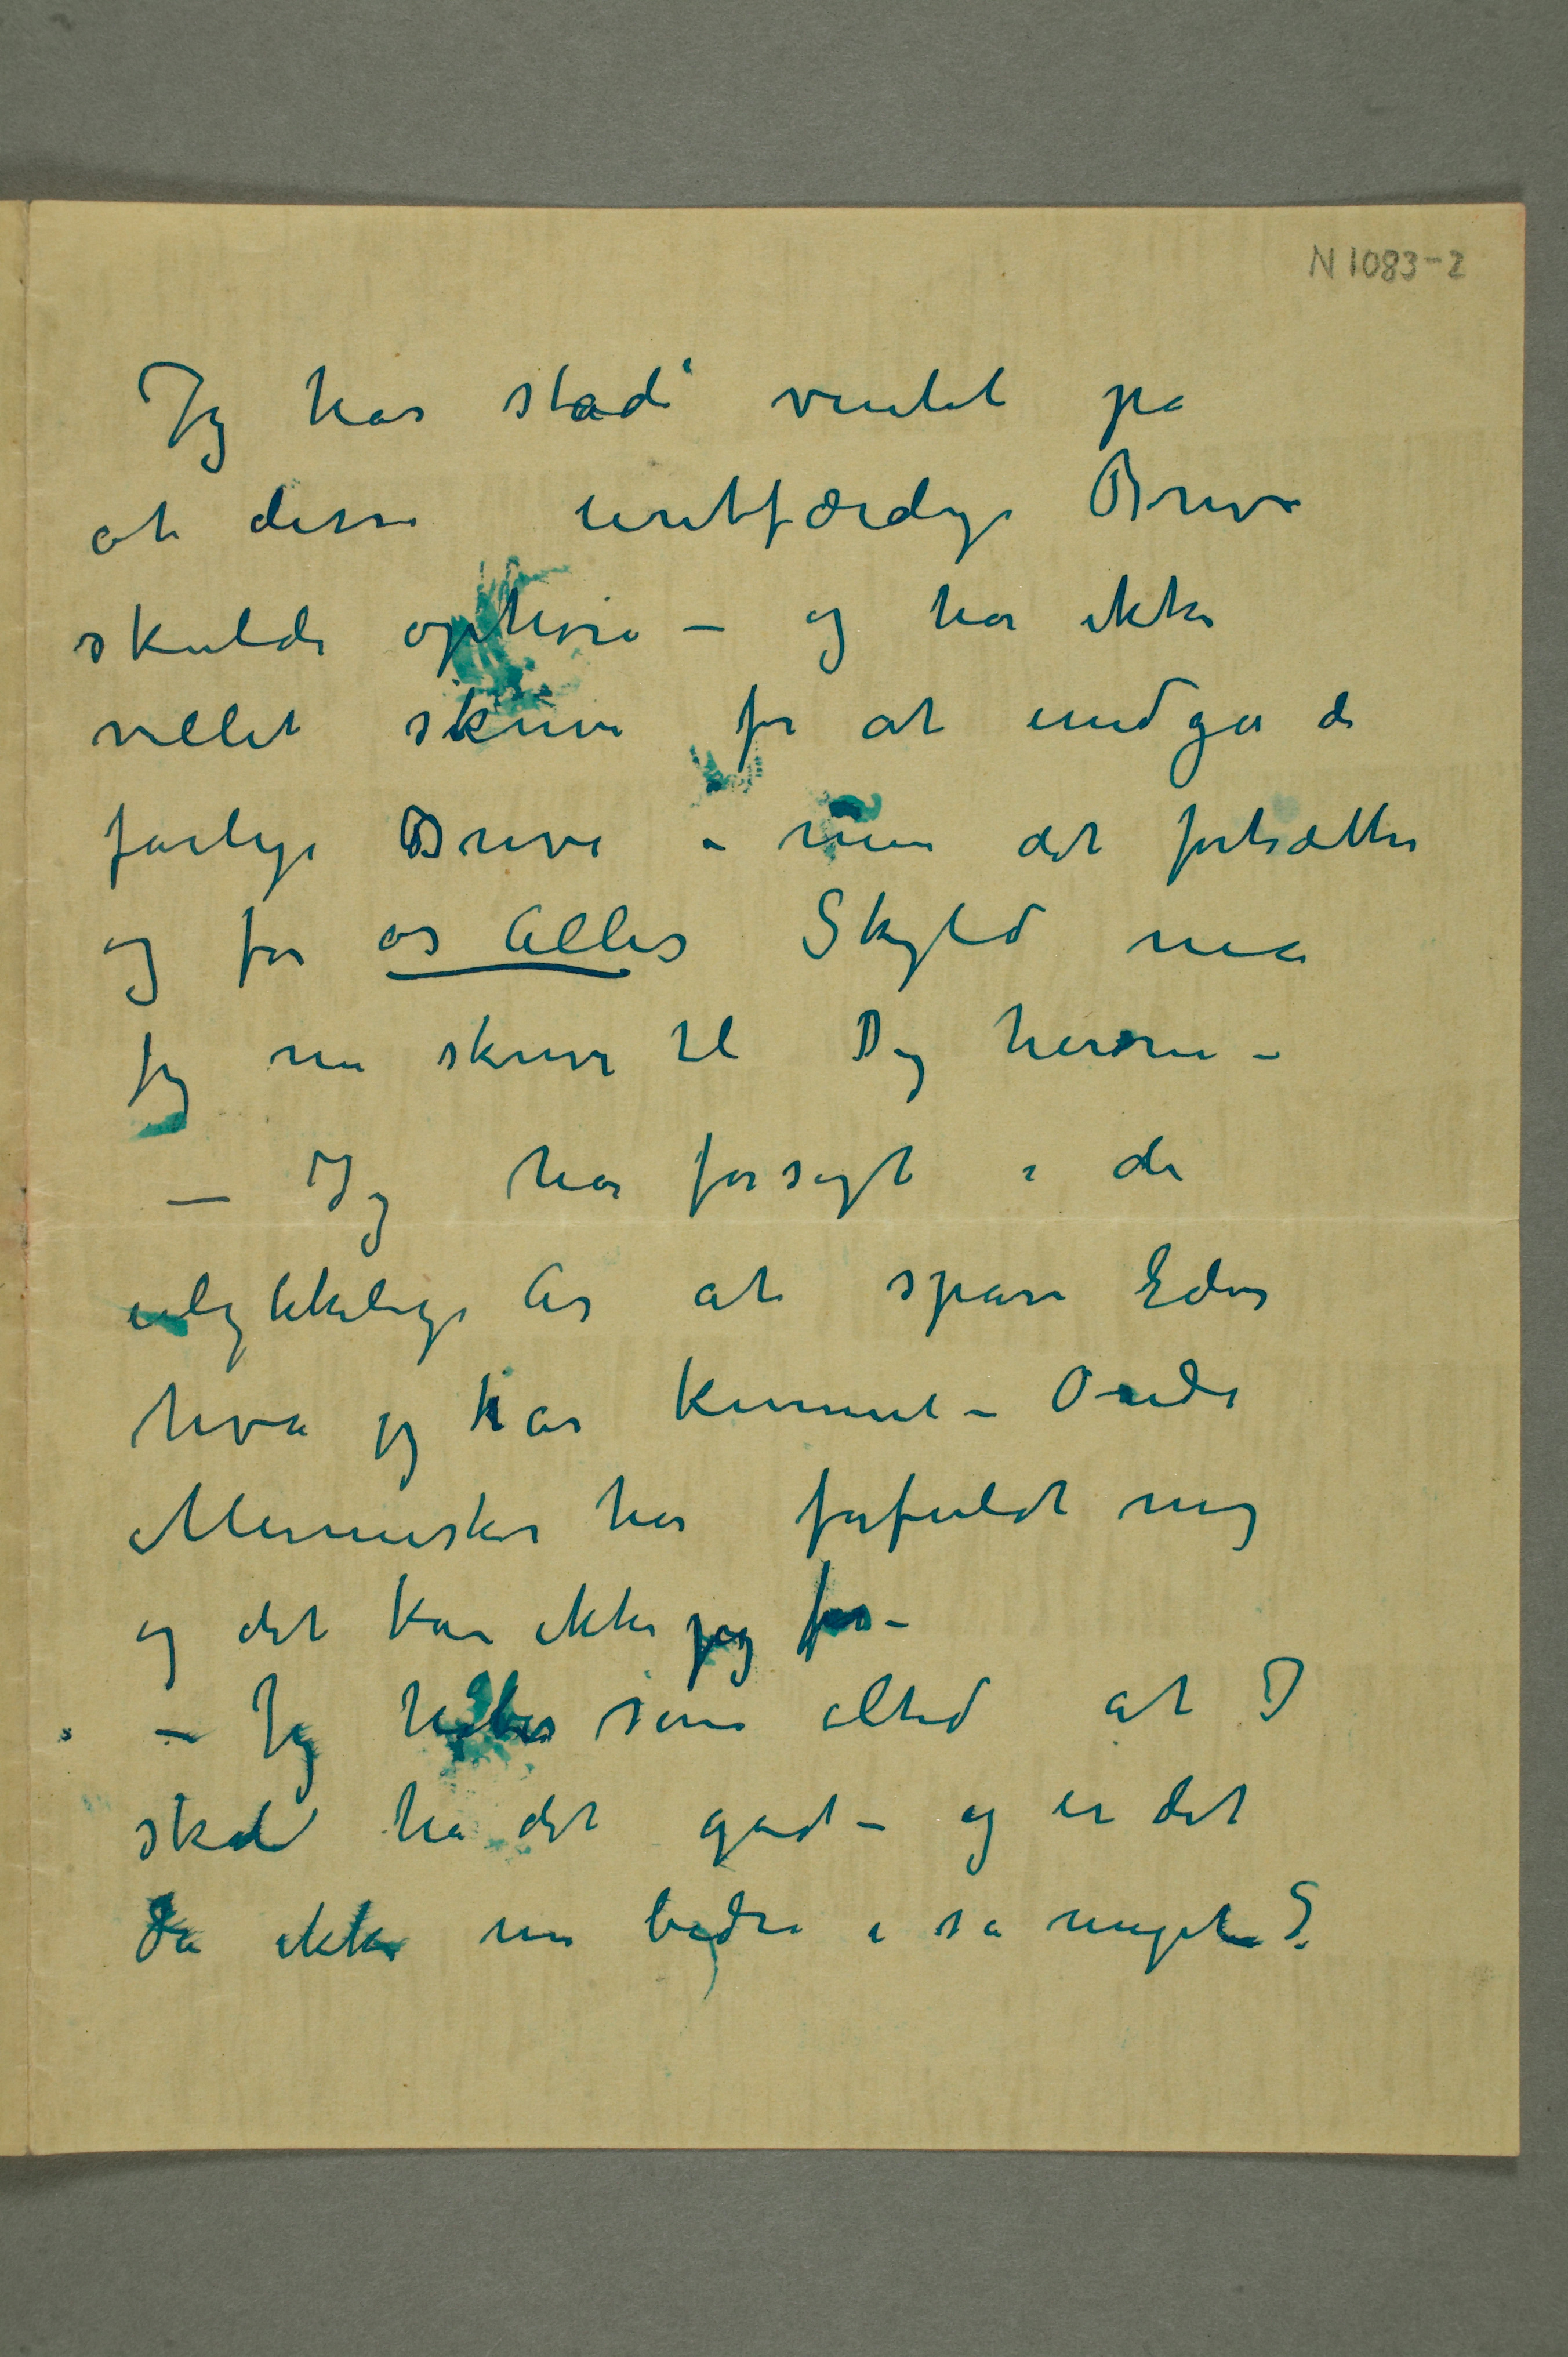 N 1083-2
Jeg har stadi ventet på
at disse uretfærdige Breve
skulde ophøre – og har ikke
villet skrive for at undgå de
farlige Breve – men det fortsætter
og for os Alles Skyld må
jeg nu skrive til Dig herom –
– Jeg har forsøgt i de
ulykkelige År at spare Eder
hva jeg har kunnet – Onde
Mennesker har forfuldt mig
og det kan ikke jeg for –
– Jeg håber som altid at I
skal ha det godt – og er det
da ikke nu bedre i så meget?